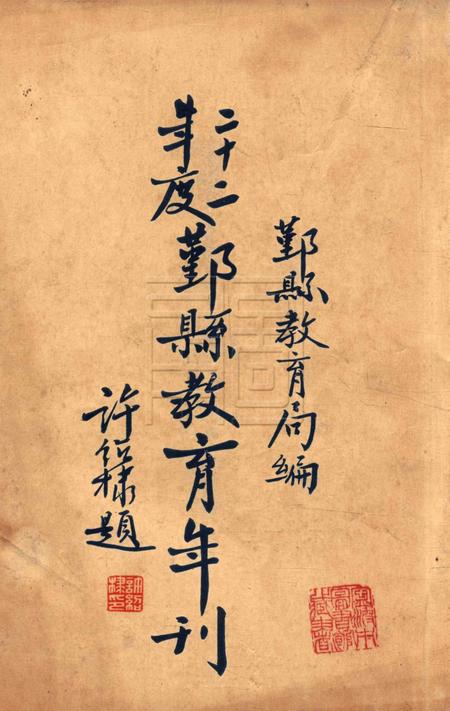 鄞縣教育局編
二十二年度鄞縣教育年刊
許紹棣題
許紹棣印